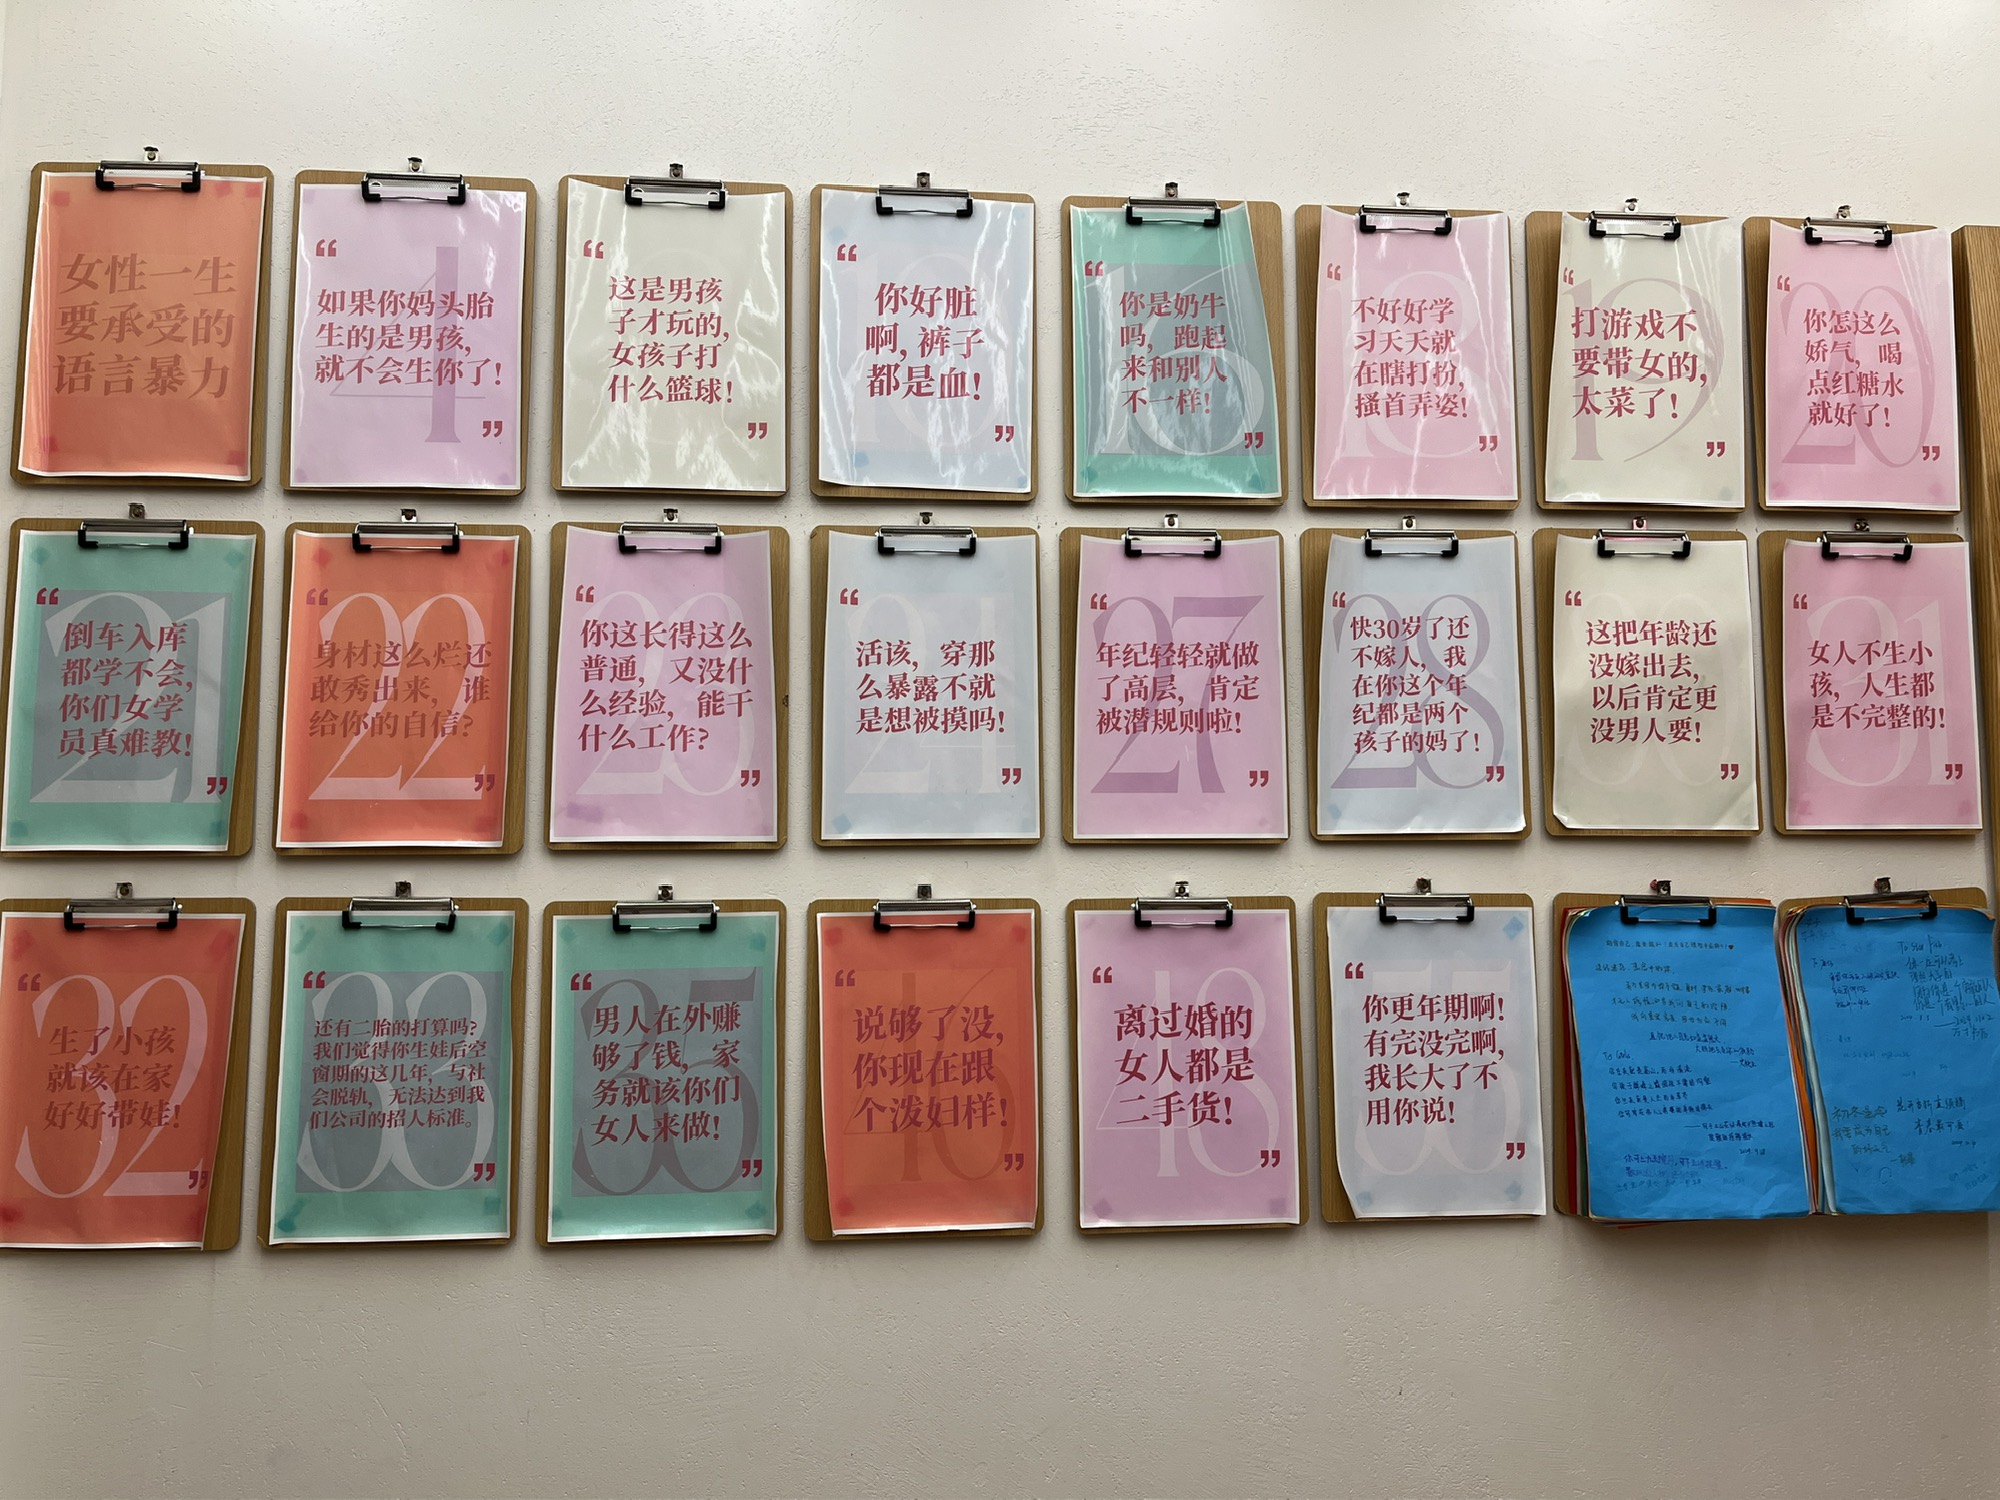 女性一生
要承受的
语言暴力
4
“
如果你妈头胎
生的是男孩,
就不会生你了!
”
“
这是男孩
子才玩的,
女孩子打
什么篮球!
”
“
你好脏
啊, 裤子
都是血!
”
16
“
你是奶牛
吗, 跑起
来和别人
不一样!
”
18
“
不好好学
习天天就
在瞎打扮,
搔首弄姿!
”
19
“
打游戏不
要带女的,
太菜了!
”
20
“
你怎这么
娇气, 喝
点红糖水
就好了!
”
21
“
倒车入库
都学不会,
你们女学
员真难教!
”
22
“
身材这么烂还
敢秀出来, 谁
给你的自信?
”
23
“
你这长得这么
普通, 又没什
么经验, 能干
什么工作?
”
24
“
活该, 穿那
么暴露不就
是想被摸吗!
”
27
“
年纪轻轻就做
了高层, 肯定
被潜规则啦!
”
28
“
快30岁了还
不嫁人, 我
在你这个年
纪都是两个
孩子的妈了!
”
30
“
这把年龄还
没嫁出去,
以后肯定更
没男人要!
”
31
“
女人不生小
孩, 人生都
是不完整的!
”
32
“
生了小孩
就该在家
好好带娃!
”
33
“
还有二胎的打算吗?
我们觉得你生娃后空
窗期的这几年, 与社
会脱轨, 无法达到我
们公司的招人标准。
”
35
“
男人在外赚
够了钱, 家
务就该你们
女人来做!
”
“
说够了没,
你现在跟
个泼妇样!
”
48
“
离过婚的
女人都是
二手货!
”
55
“
你更年期啊!
有完没完啊,
我长大了不
用你说!
”